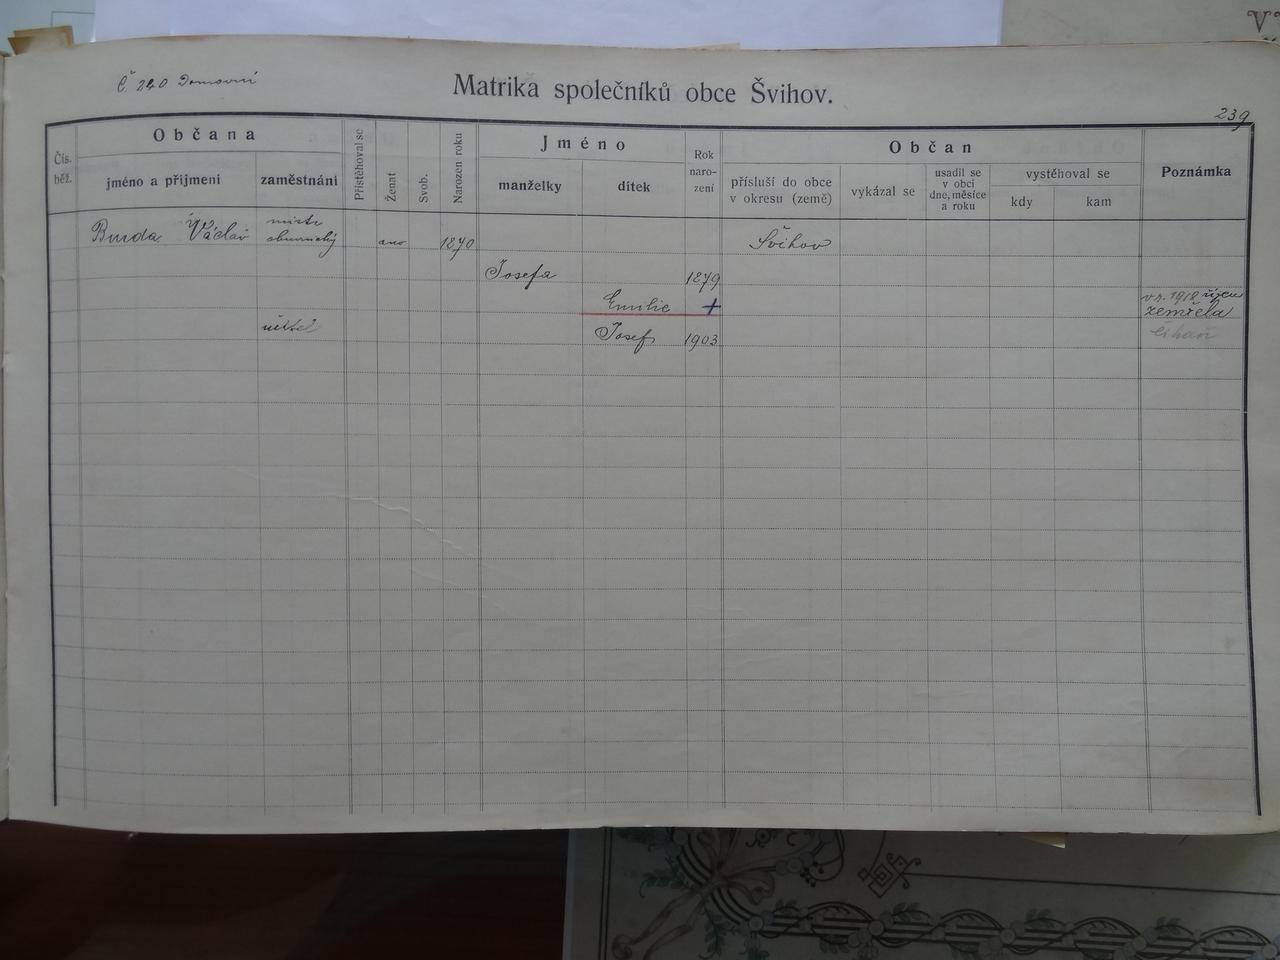 Č. 240 Domovní
Matrika společníků obce Švihov.
239
Čís. běž.
Občana
jméno a příjmení
zaměstnání
Přistěhoval se
Ženat
Svob.
Narozen roku
Jméno
manželky
dítek
Rok naro-zení
Občan
přísluší do obce
v okresu (země)
vykázal se
usadil se
v obci
dne, měsíce
a roku
vystěhoval se
kdy
kam
Poznámka
Burda Václav mistr obuvnický ano 1870 Švihov
Josefa 1879
Emilie + v r. 1918 říjnu zemřela
učitel Josef 1903